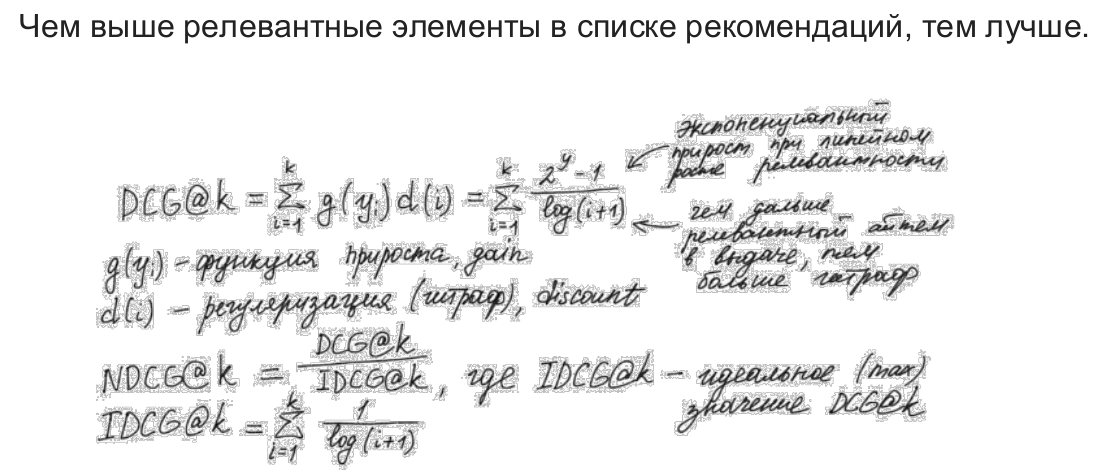 Чем выше релевантные элементы в списке рекомендаций, тем лучше.
DCG@k = Σ_{i=1}^{k} g(y_i) d(i) = Σ_{i=1}^{k} (2^y - 1) / log(i+1)
экспоненциальный
прирост при линейном
росте релевантности
чем дальше
релевантный айтем
в выдаче, тем
больше штраф
g(y_i) – функция прироста, gain
d(i) – регуляризация (штраф), discount
NDCG@k = DCG@k / IDCG@k, где IDCG@k – идеальное (max)
значение DCG@k
IDCG@k = Σ_{i=1}^{k} 1 / log(i+1)